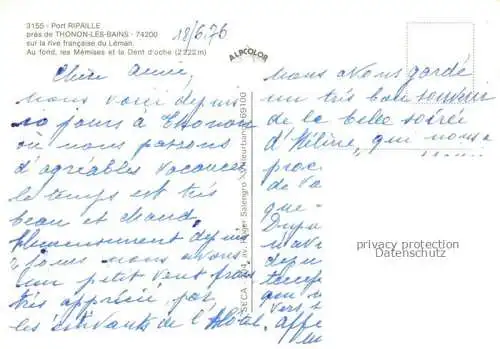 3155 - Port RIPAILLE
près de THONON-LES-BAINS - 74200
sur la rive française du Léman.
Au fond, les Mémises et la Dent d'oche (2222m)
18/6.76
ALPCOLOR
Chère amie,
Nous voici depuis
10 jours à Thonon
où nous passons
d'agréables vacances
le temps est très
beau et chaud,
Heureusement depuis
2 jours nous avons
un petit vent frais
très apprécié par
les estivants de l'Hôtel.
SECA - av. Roger Salengro Villeurbanne 69100
Nous avons gardé
un très bon souvenir
de la belle soirée
d'Hélène, qui nous a
proc
de va
que
Dupu
mat
depu
terre
que n
vers
affe
privacy protection
Datenschutz